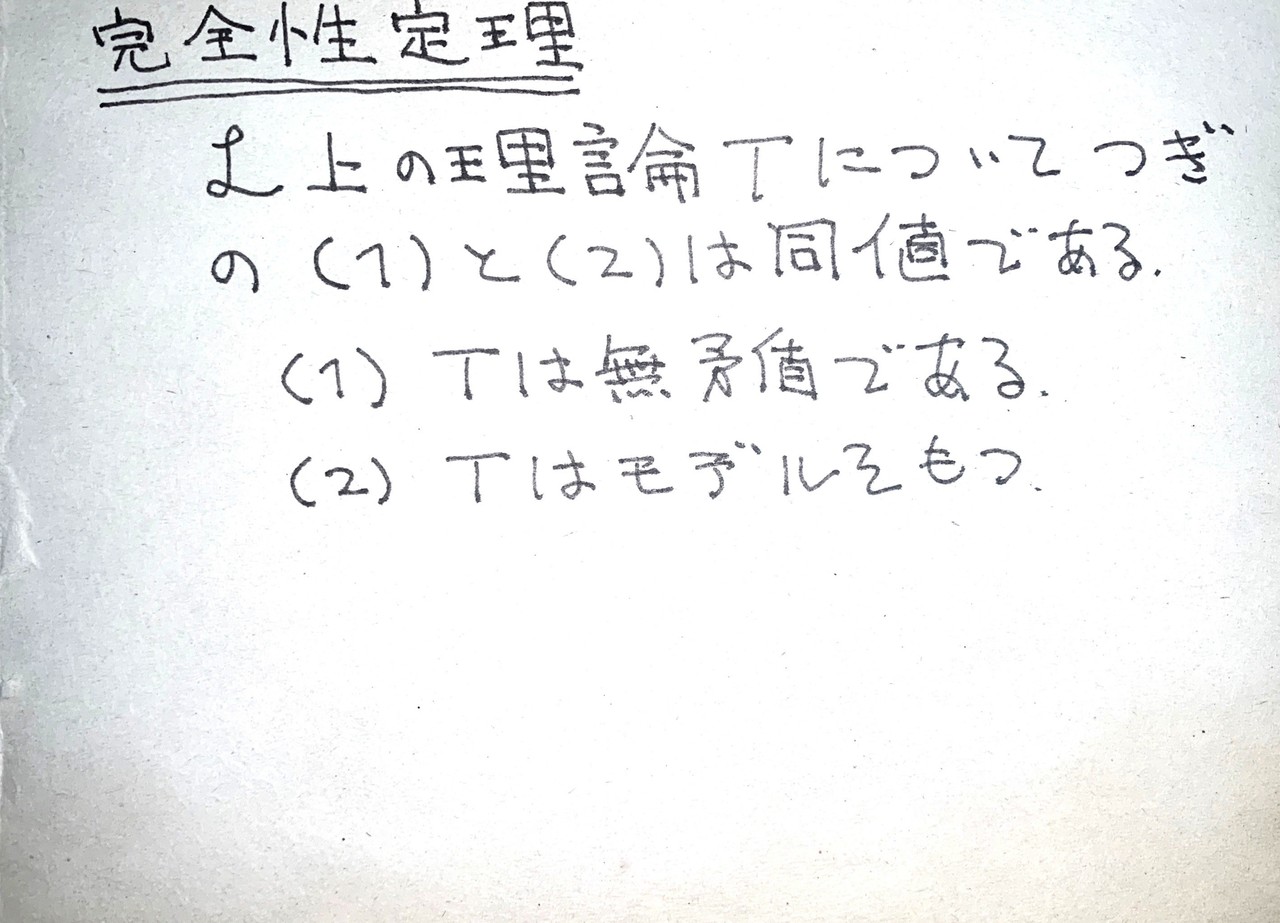 完全性定理
ℒ上の理論Tについてつぎ
の(1)と(2)は同値である.
(1) Tは無矛値である.
(2) Tはモデルをもつ.